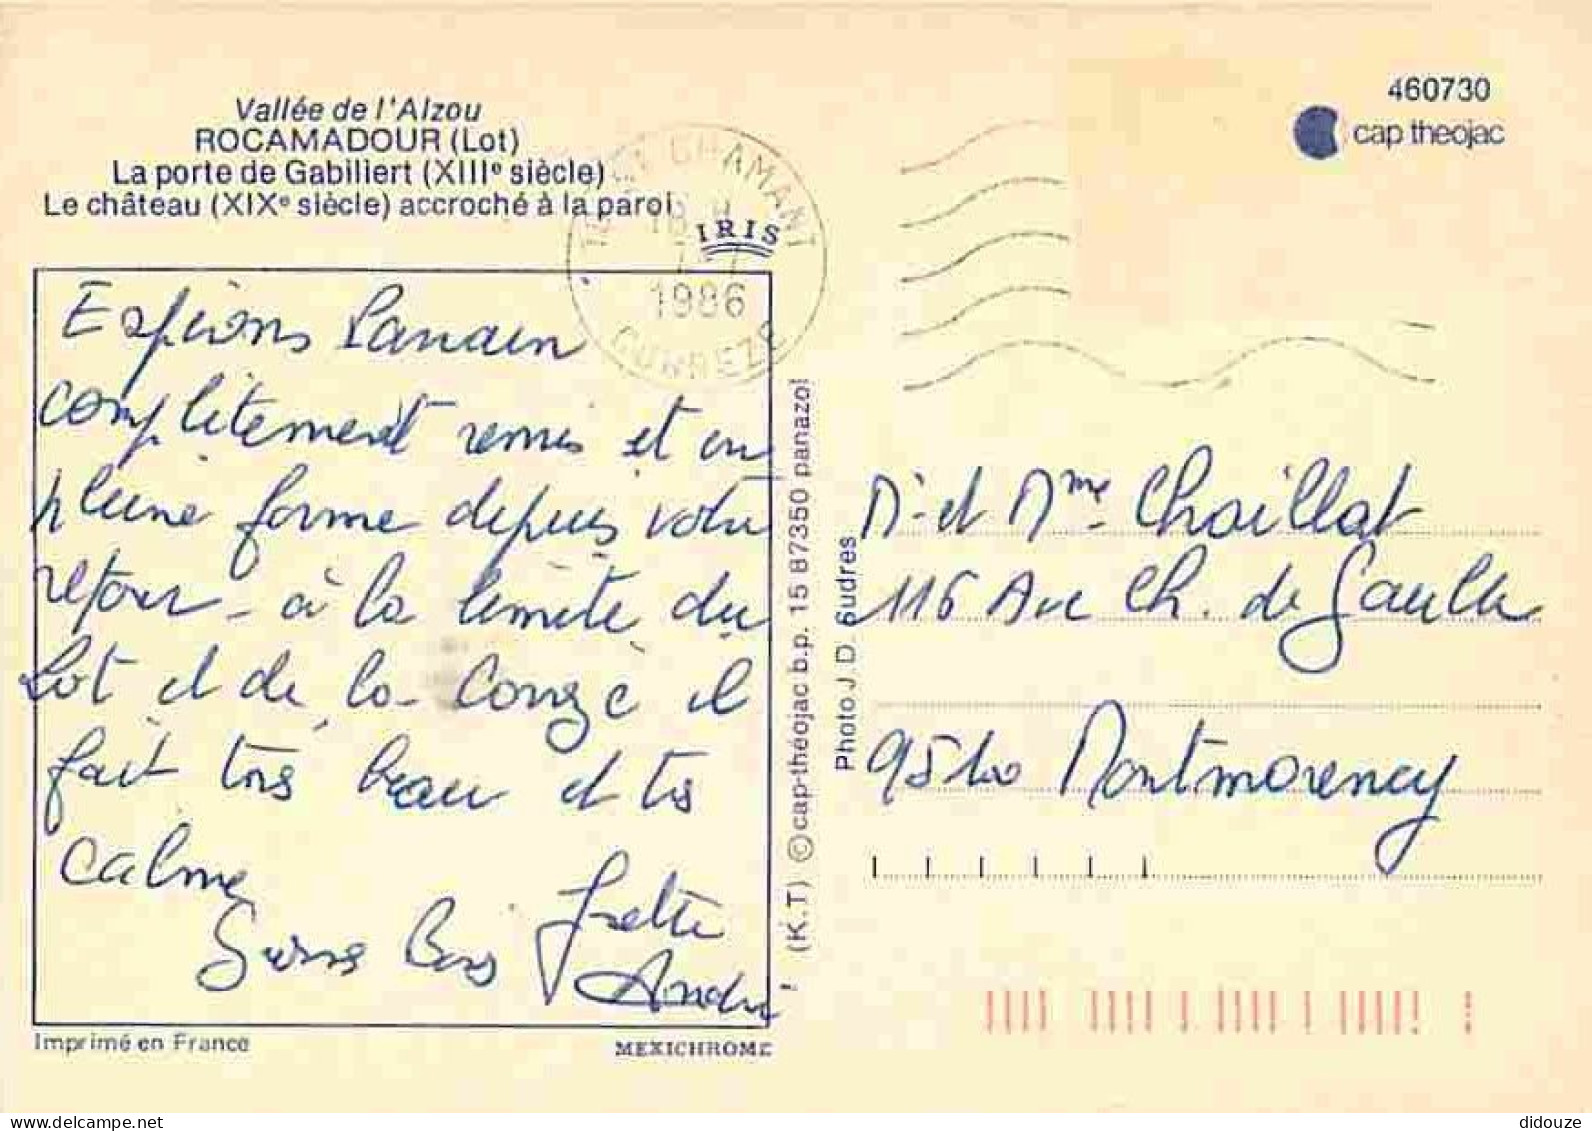 Vallée de l'Alzou
ROCAMADOUR (Lot)
La porte de Gabiliert (XIIIe siècle)
Le château (XIXe siècle) accroché à la paroi
460730
cap theojac
IRIS
CHAMANT
18 H
1986
CORREZE
Espérons
complètement remis et en
pleine forme depuis votre
retour - à la limite du
Lot et de la Corrèze il
fait très beau et très
calme
Grosses Bises Ginette
André
Mr et Mme Chaillat
116 Ave Ch. de Gaulle
95160 Montmorency
(K.T) © cap-théojac b.p. 15 87350 panazol
Photo J. D. Sudres
Imprimé en France
MEXICHROME
delcampe.net
didouze